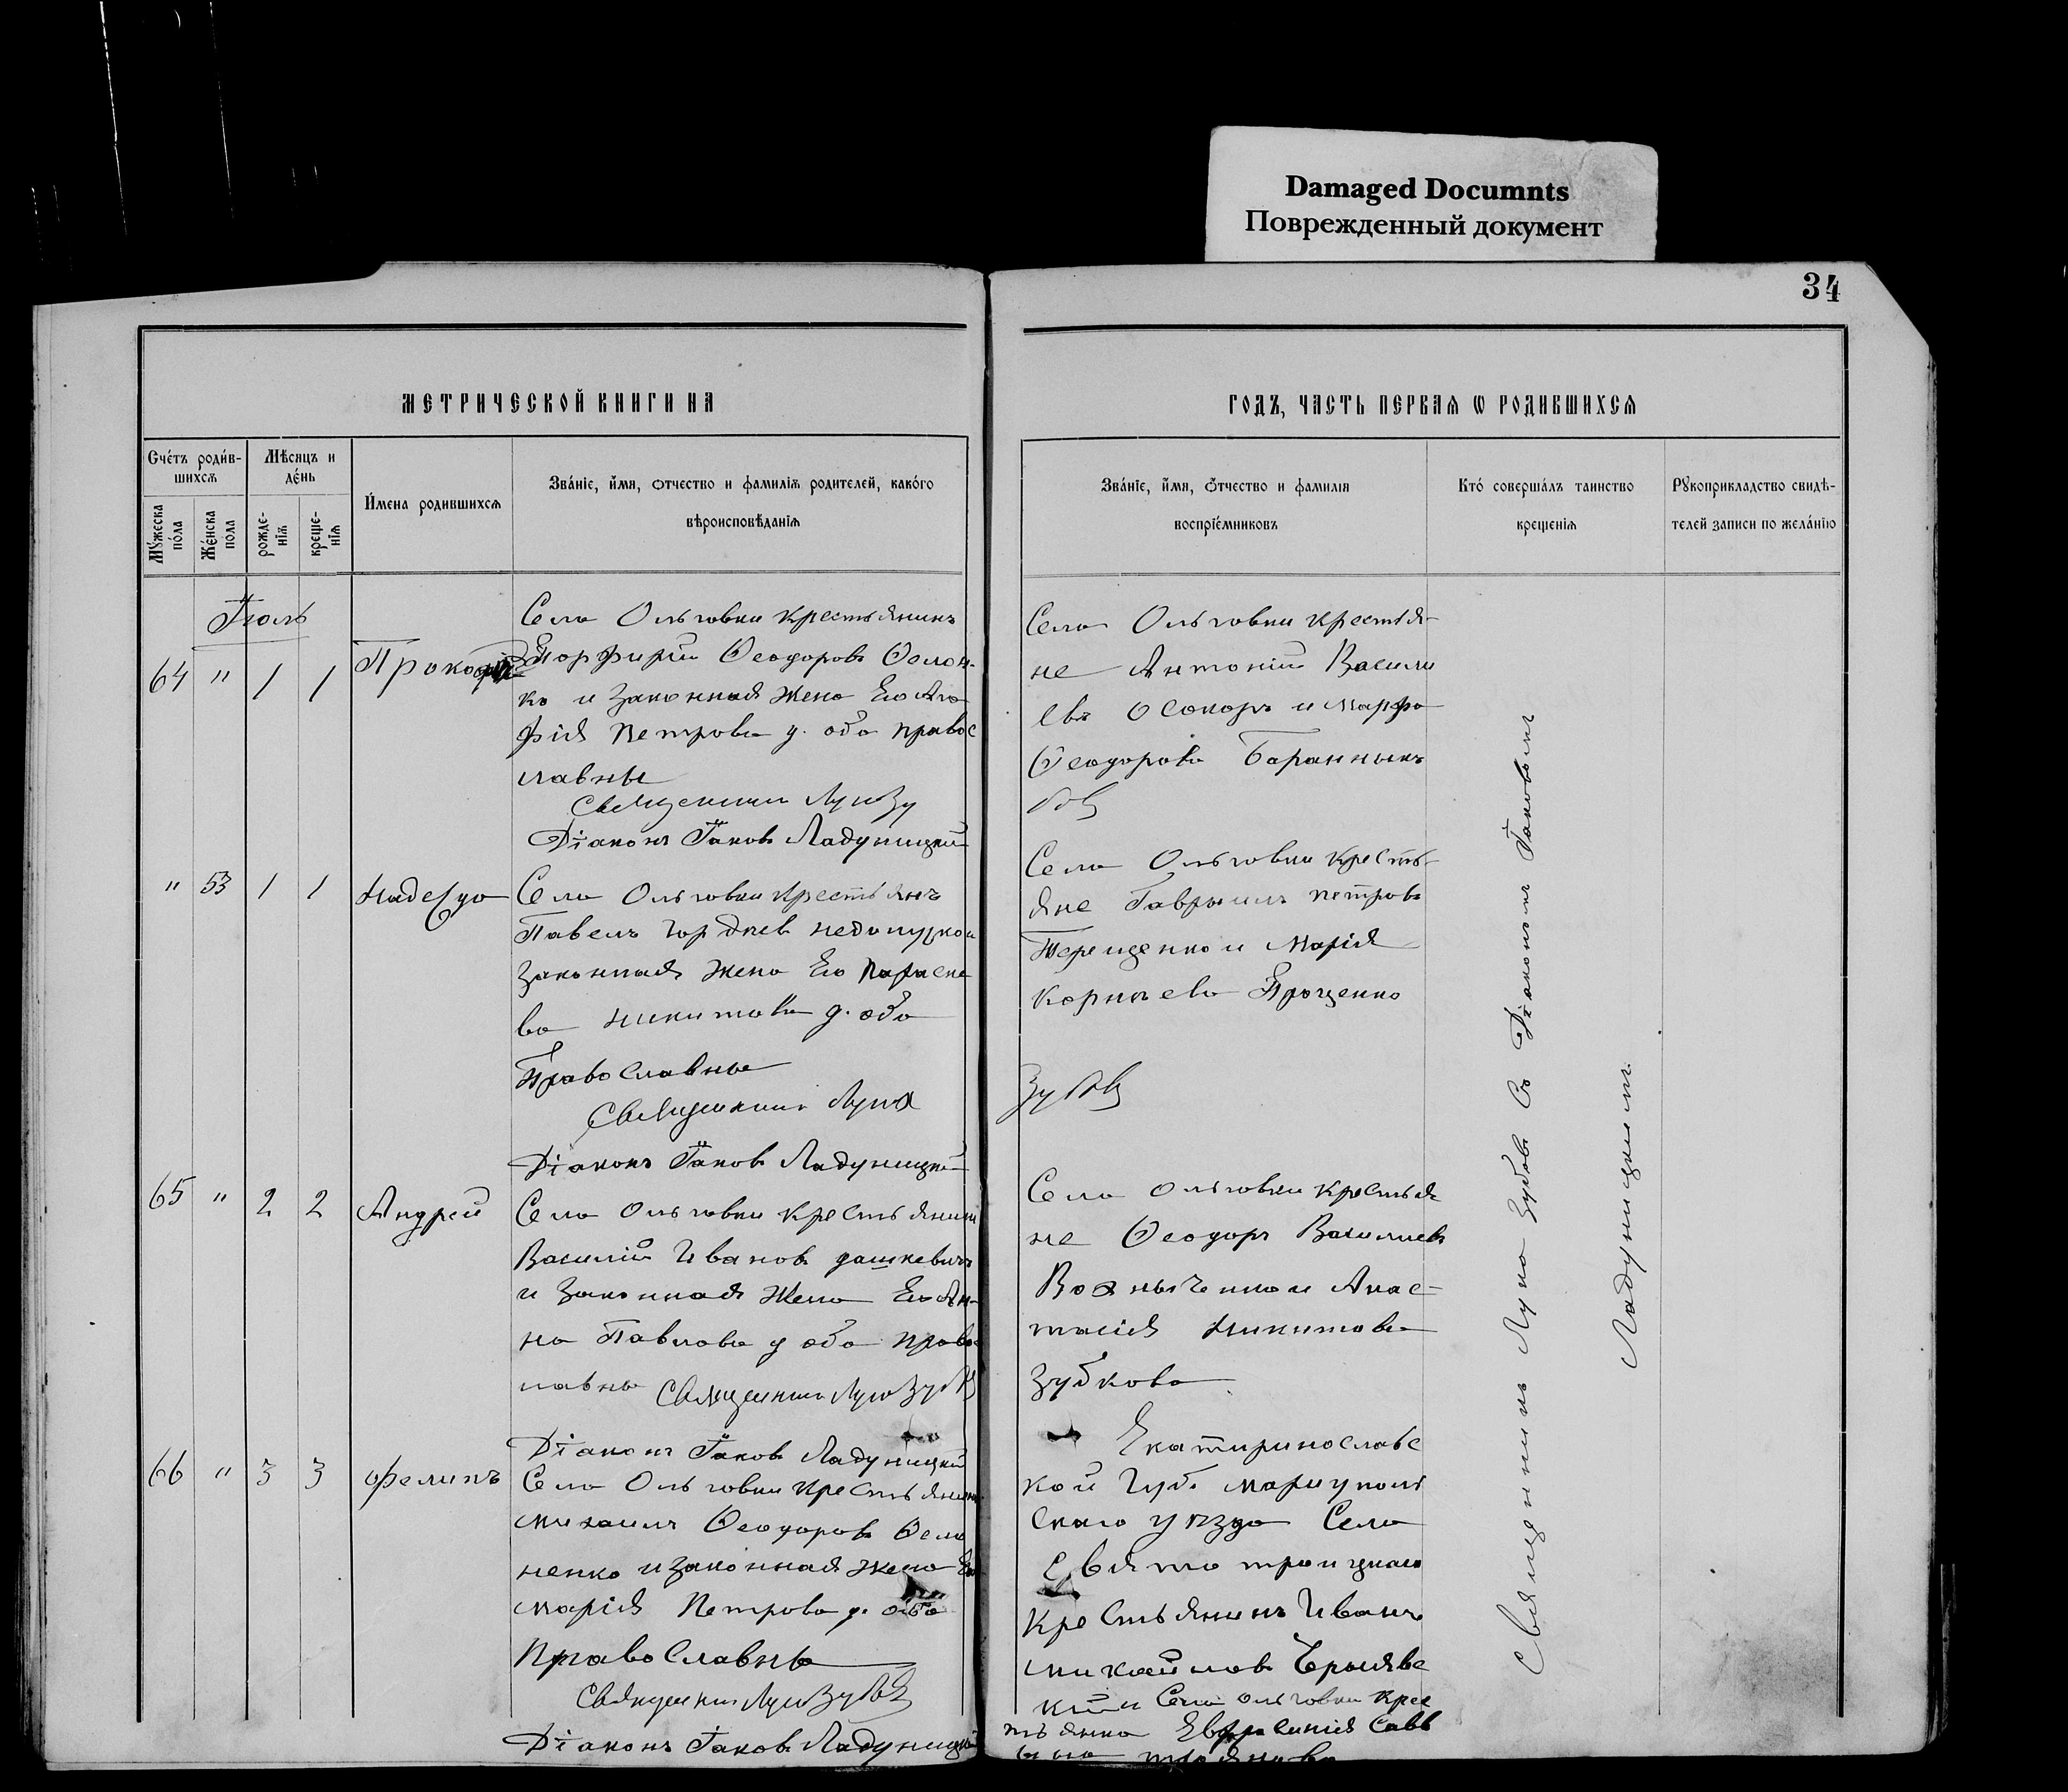 Damaged Documnts
Поврежденный документ
34
МЕТРИЧЕСКОЙ КНИГИ НА
ГОДЪ, ЧАСТЬ ПЕРВАѦ Ѡ РОДИВШИХСѦ
Счétъ роди́в-
шихсѧ
Мѣ́сяцъ и
де́нь
Му́жеска по́ла
Же́нска по́ла
рожде-
нїѧ
креще-
нїѧ
И́мена родившихсѧ
Зва́нїе, и́мя, ѻтчество и фамилїѧ родителей, како́го
вѣроисповѣ́данїѧ
Зва́нїе, и́мя, ѻ́тчество и фамилїя
воспрїе́мниковъ
Кто́ соверша́лъ таинство
крещенїѧ
Рꙋкоприкладство свидѣ-
телей записи по жела́нїю
Іюль
64 " 1 1
Прокофій
Села Ольговки крестьянинъ
Порфирій Ѳеодоровъ
и законная жена Его Ага
фія Петрова у. оба правос
лавны
Священникъ Лука Зу
Діаконъ Іаковъ Ладуницкій
Села Ольговки крестья-
не Антоній Васили
евъ и Марфа
Ѳеодорова
бовъ
" 53 1 1
Надежда
Села Ольговки крестьянъ
Павелъ
законная жена Его Параске
ва Никитова у. оба
Православны
Священникъ Лука
Діаконъ Іаковъ Ладуницкій
Села Ольговки кресть-
яне Гавріилъ Петровъ
Терещенко и Марія
Корнѣева Проценко
Зубовъ
65 " 2 2
Андрей
Села Ольговки крестьянинъ
Василій Ивановъ Дашкевичъ
и законная жена Его Ан-
на Павлова у оба правос
лавны Священникъ Лука Зубовъ
Діаконъ Іаковъ Ладуницкій
Села Ольговки крестья
не Ѳеодоръ Васильевъ
и Анас-
тасія Никитова
Зубкова
66 " 3 3
Филипъ
Села Ольговки крестьянинъ
Михаилъ Ѳеодоровъ
ненко и законная жена Его
Марія Петрова у. оба
Православны
Священникъ Лука Зубовъ
Діаконъ Іаковъ Ладуницкій
Екатиринославс
кой Губ. Мариуполь
скаго уѣзда Села
Свято троицкаго
крестьянинъ Иванъ
Михайловъ
Села Ольговки крес
тьянка Евфросинія Савв
Священникъ Лука Зубовъ Съ Діакономъ Іаковомъ
Ладуницкимъ.